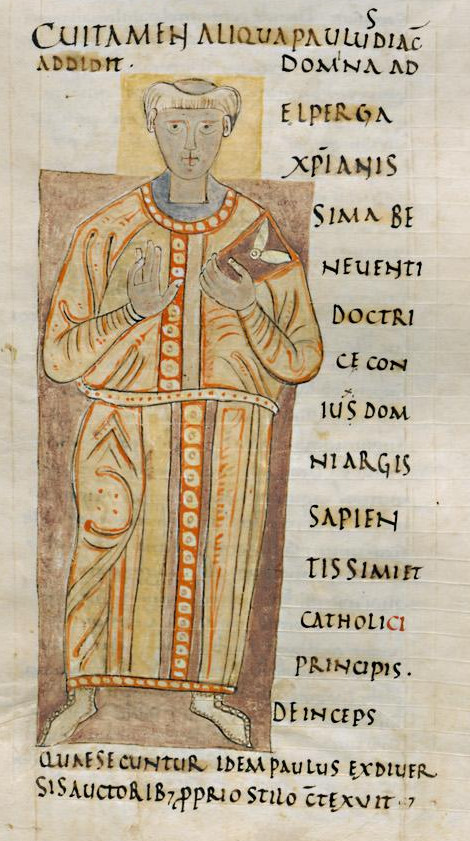 CUITAMEN ALIQUA PAULUS DIAC̅
ADDIDIT. DOMNA AD
ELPERGA
XP̅IANIS
SIMA BE
NEUENTI
DOCTRI
CE CON
IUS DOM
NI ARGIS
SAPIEN
TISSIMI ET
CATHOLICI
PRINCIPIS.
DEINCEPS
QUAE SECUNTUR IDEM PAULUS EX DIUER
SIS AUCTORIB; ꝓPRIO STILO C̅TEXUIT